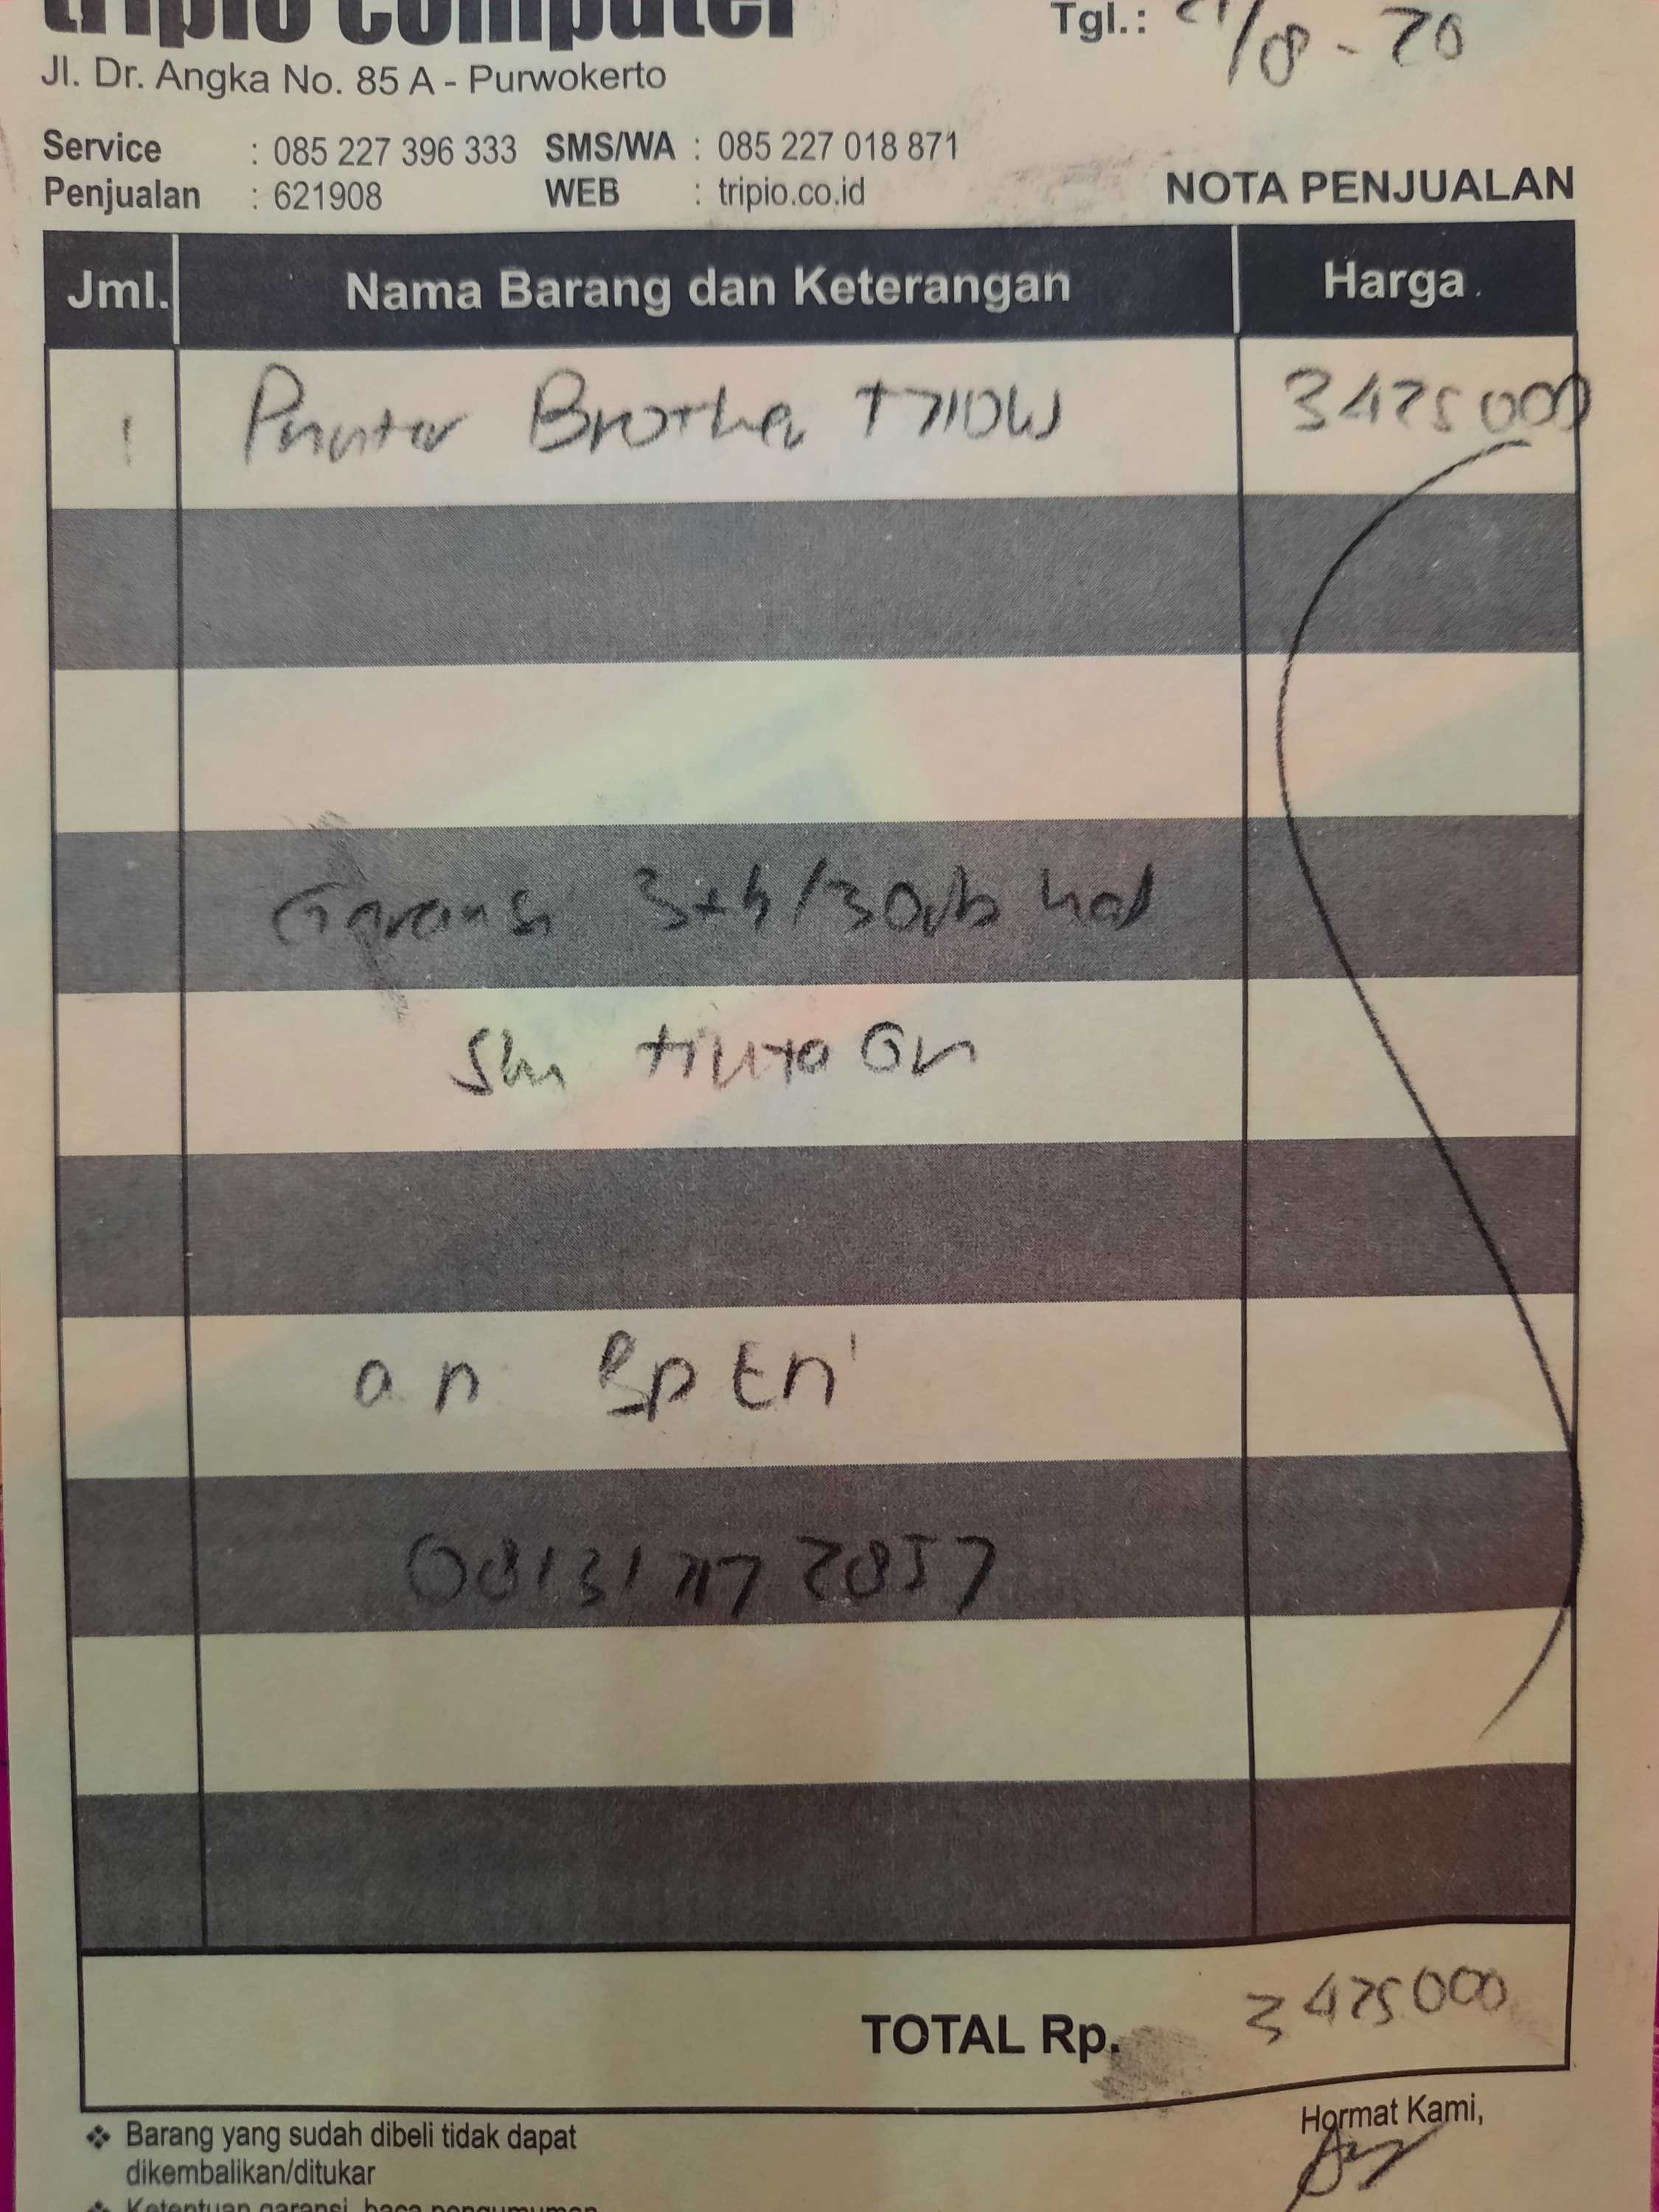 tripio computer
Tgl.: 21/08-20
Jl. Dr. Angka No. 85 A - Purwokerto
Service : 085 227 396 333 SMS/WA : 085 227 018 871
Penjualan : 621908 WEB : tripio.co.id
NOTA PENJUALAN
Jml. Nama Barang dan Keterangan Harga
1 Printer Brother T710W 3425000
Garansi 3th/30rb hal
tinta Ori
a.n Bp Eri
0813 1717 2857
TOTAL Rp. 3425000
Hormat Kami,
❖ Barang yang sudah dibeli tidak dapat
dikembalikan/ditukar
❖ Ketentuan garansi, baca pengumuman